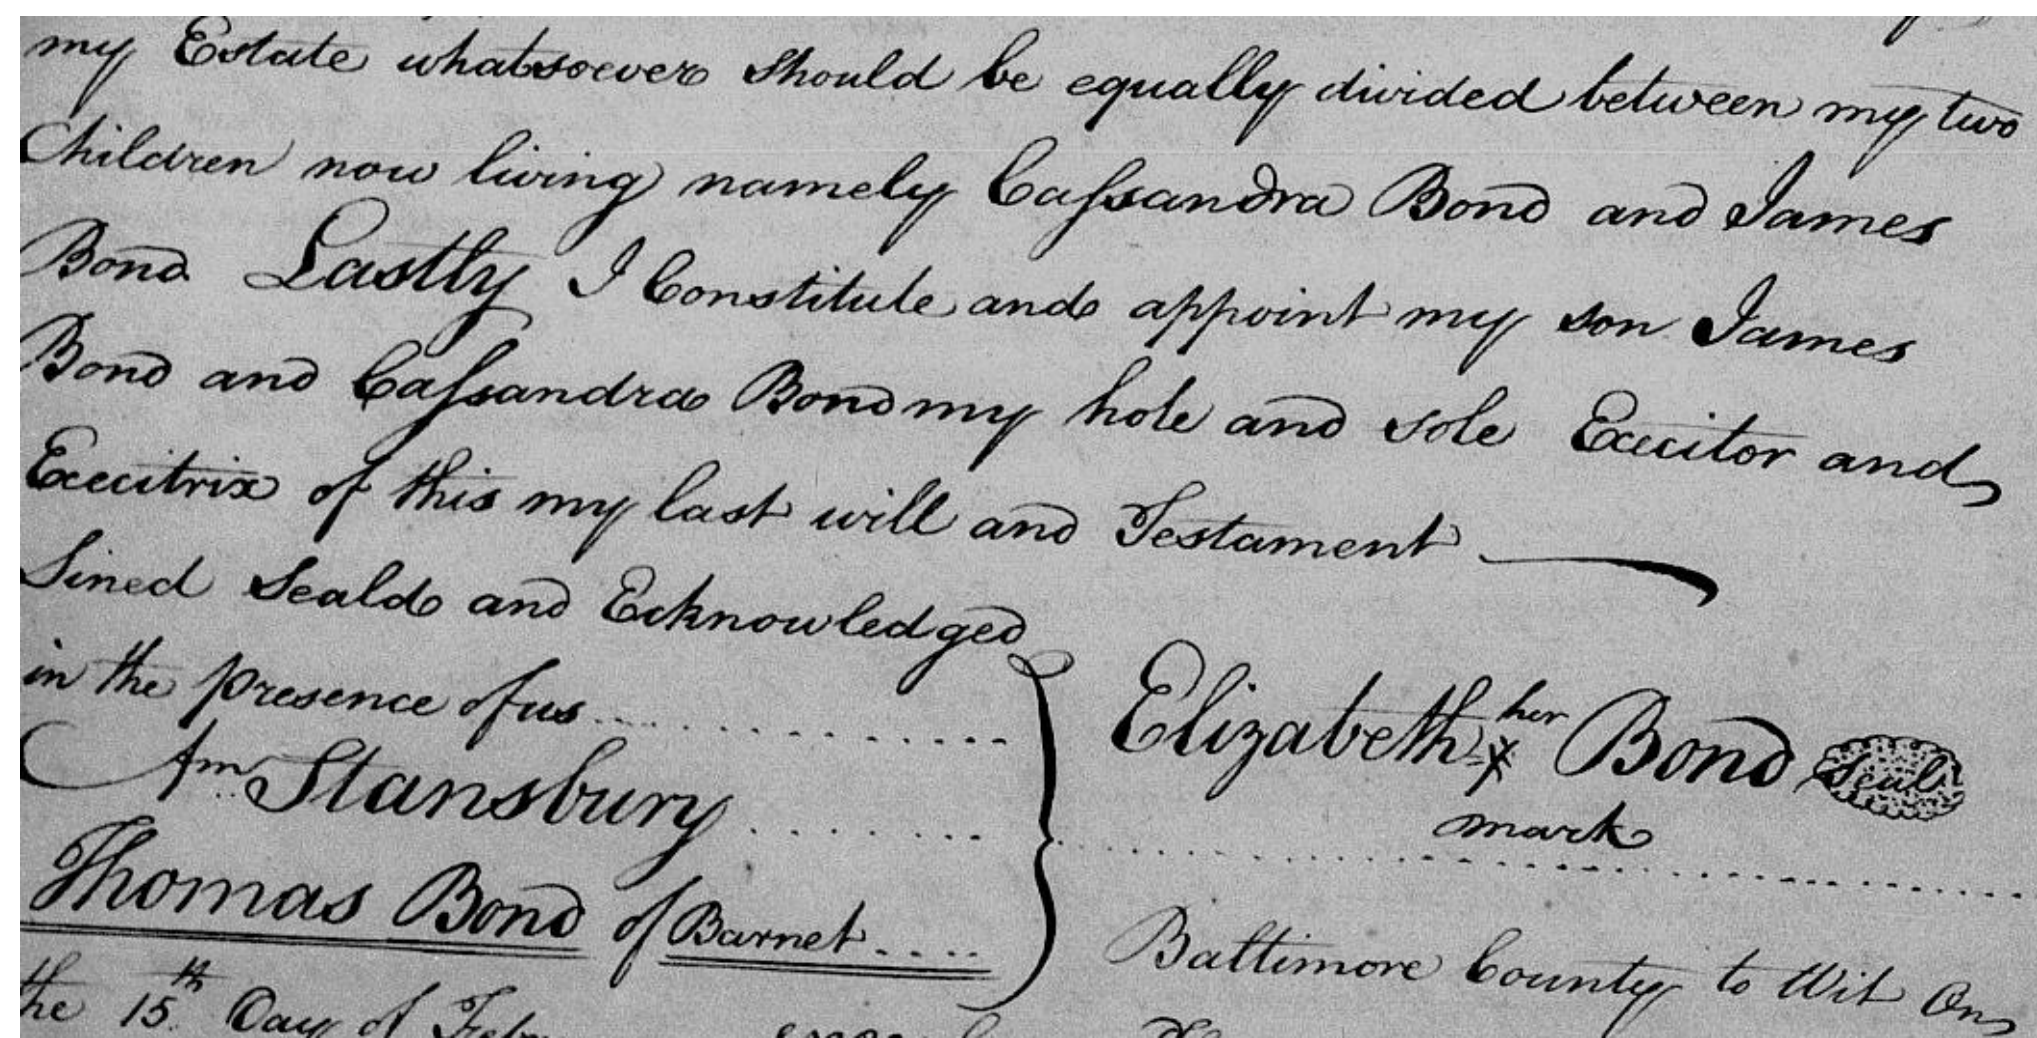 my Estate whatsoever should be equally divided between my two
Children now living namely Caſsandra Bond and James
Bond Lastly I Constitute and appoint my son James
Bond and Caſsandra Bond my hole and sole Execitor and
Execitrix of this my last will and Testament
Sined Seald and Ecknowledged
in the presence of us
Stansbury
Thomas Bond of Barnet
Elizabeth her x Bond Seal
mark
Baltimore County to Wit On
the 15th Day of